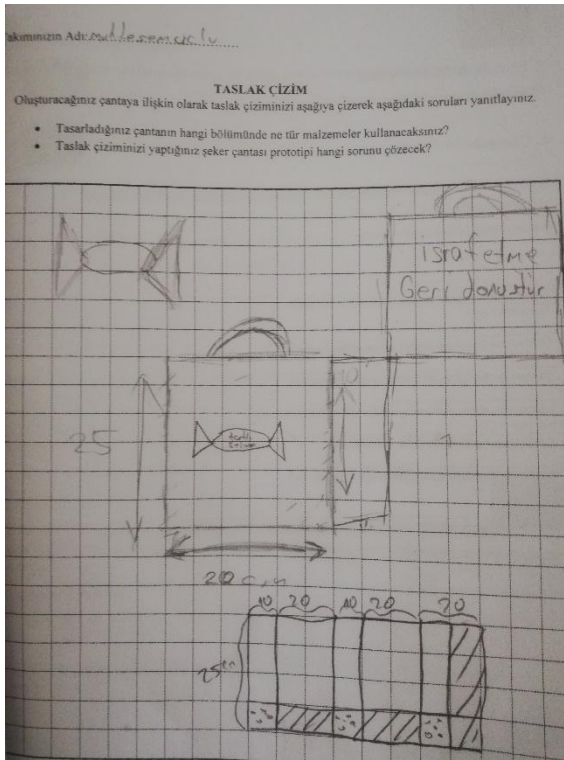 akımınızın Adı:
TASLAK ÇİZİM
Oluşturacağınız çantaya ilişkin olarak taslak çiziminizi aşağıya çizerek aşağıdaki soruları yanıtlayınız.
• Tasarladığınız çantanın hangi bölümünde ne tür malzemeler kullanacaksınız?
• Taslak çiziminizi yaptığınız şeker çantası prototipi hangi sorunu çözecek?
israf etme
Geri dönüştür
10
25
20 cm
10 20 10 20 20
25 cm